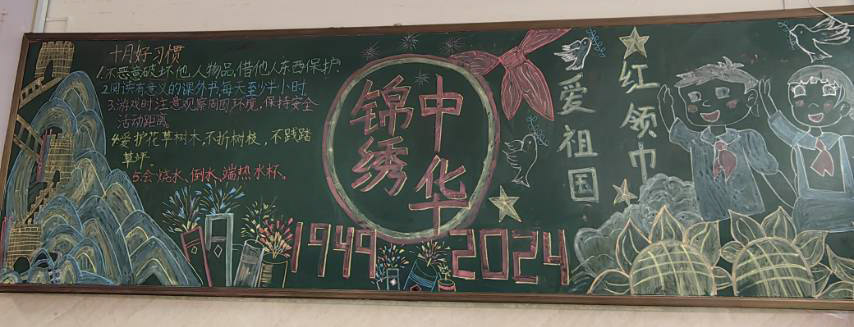 十月好习惯
1.不恶意破坏他人物品,借他人东西保护.
2.阅读有意义的课外书,每天至少半小时
3.游戏时注意观察周围环境,保持安全
活动距离
4.爱护花草树木,不折树枝,不践踏
草坪.
5.会烧水、倒水、端热水杯。
锦绣
中华
1949
2024
爱祖国
红领巾